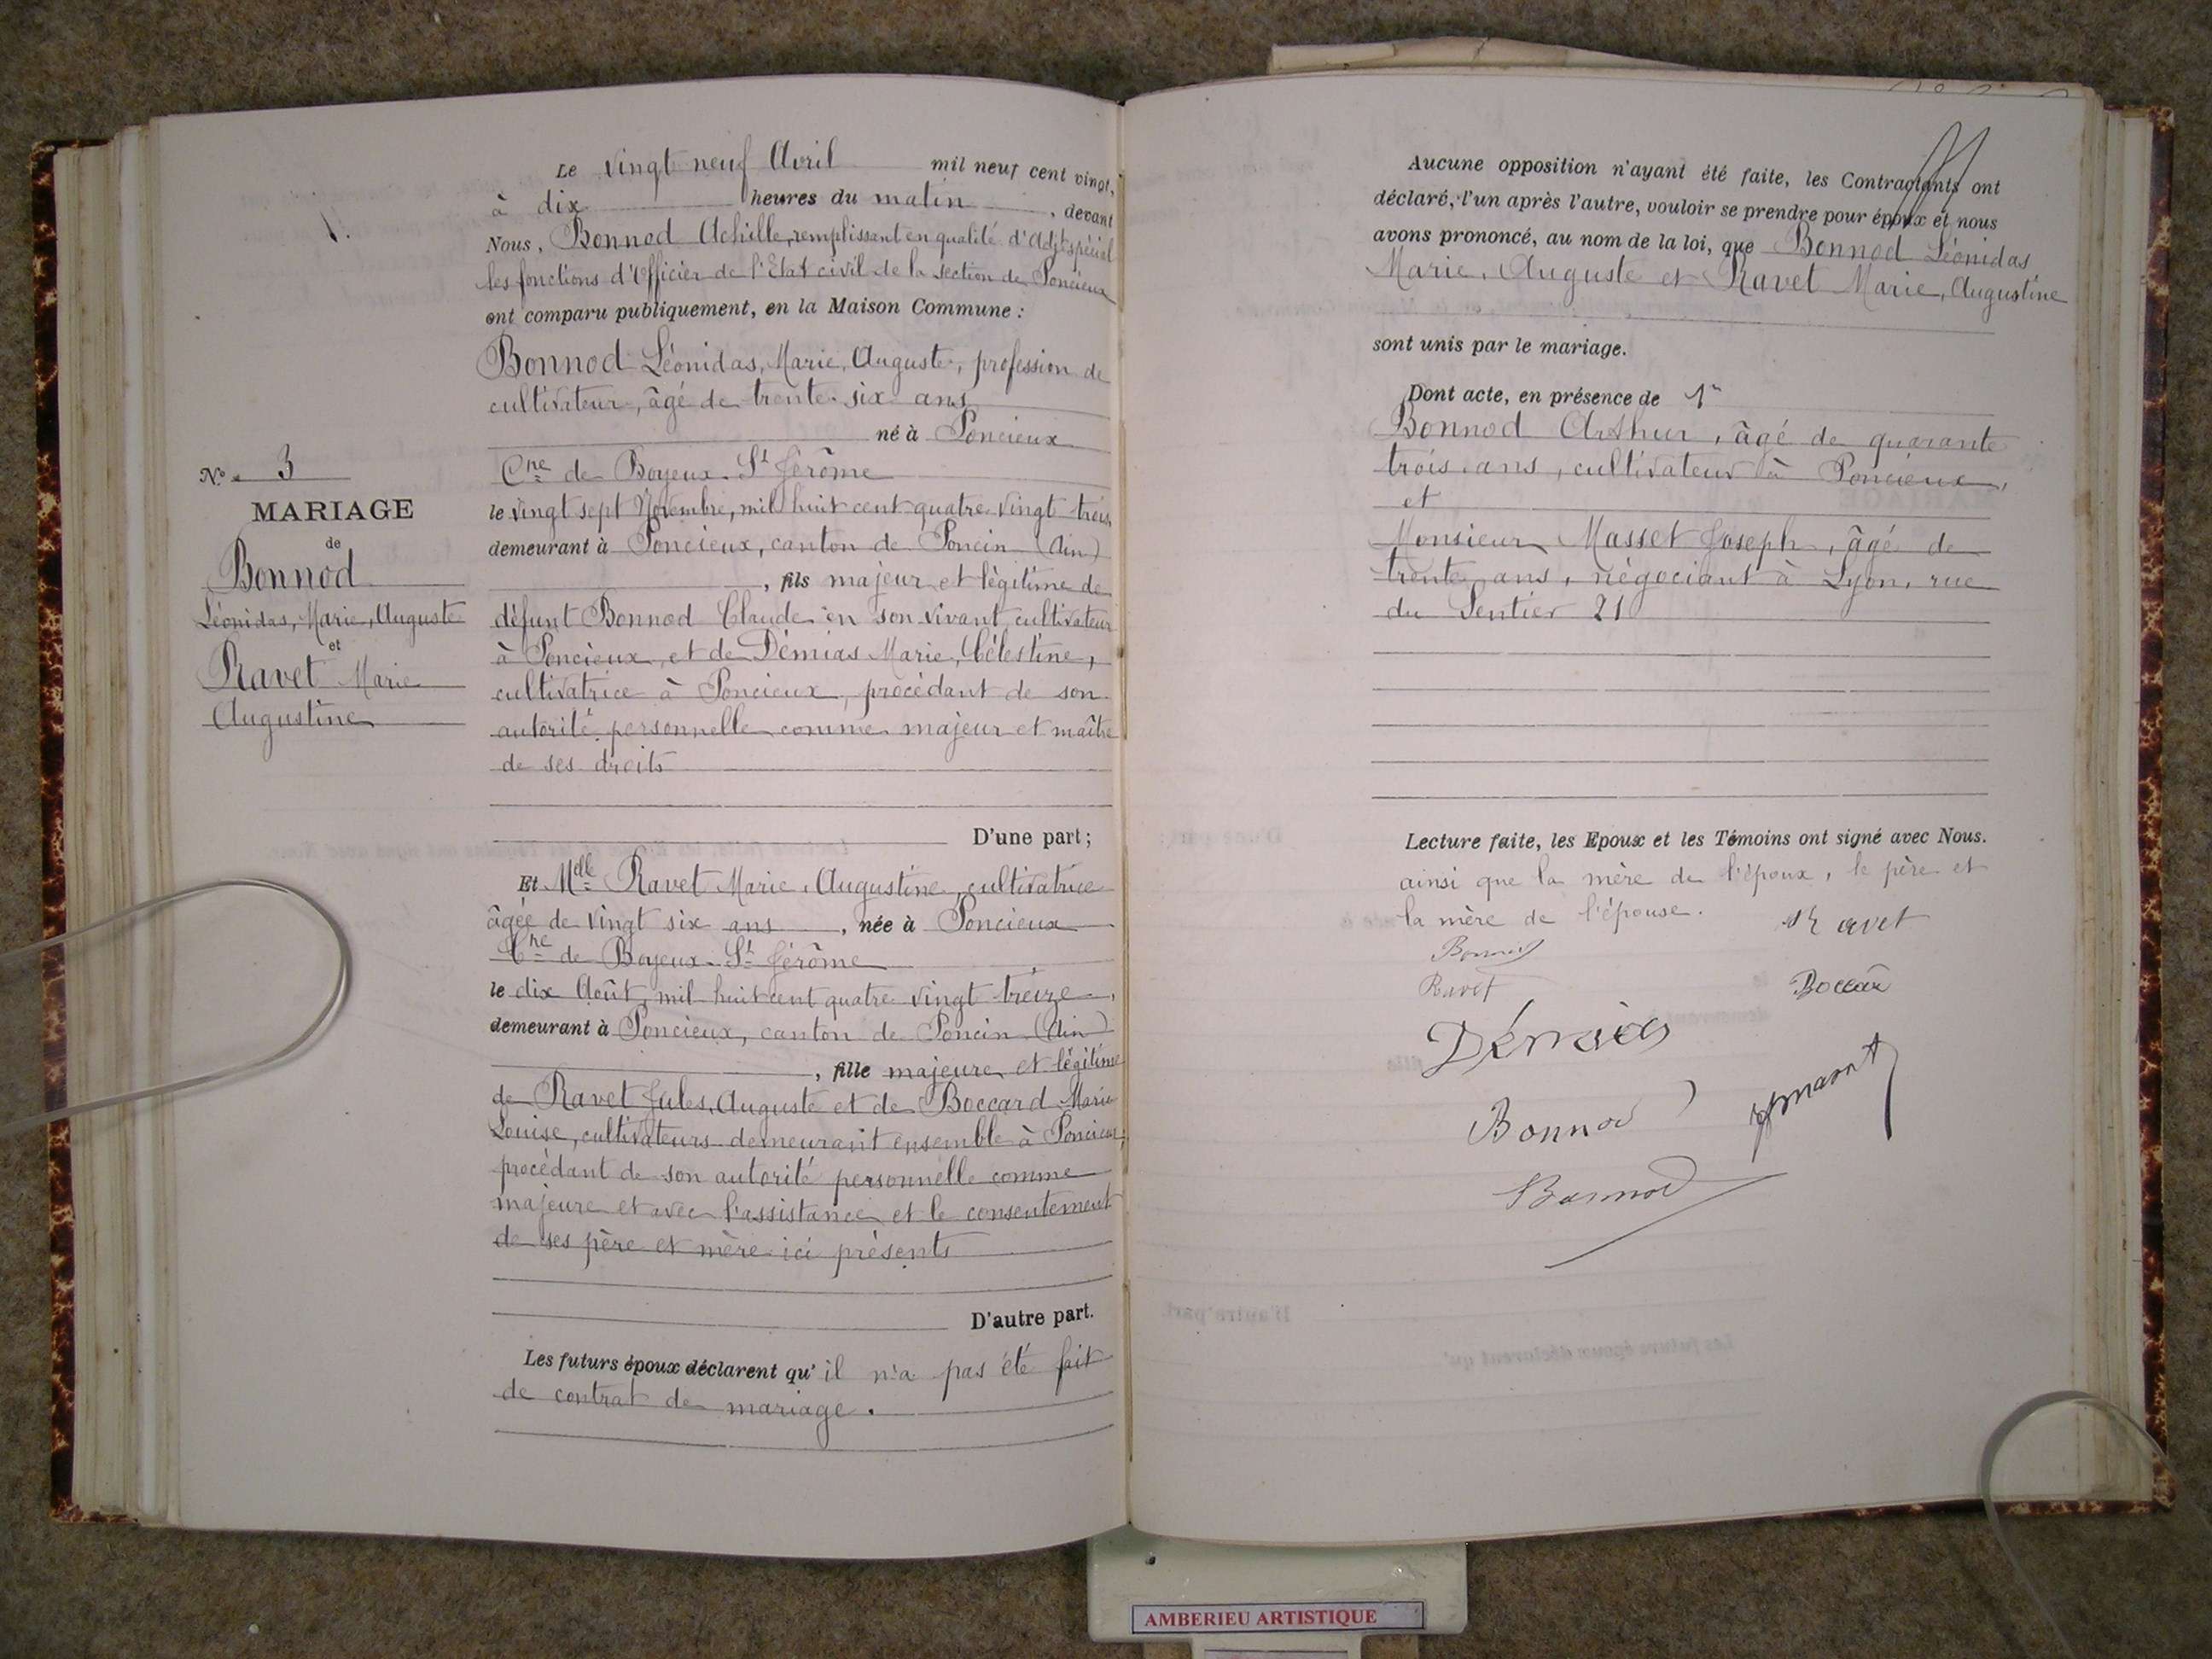 Le vingt neuf Avril mil neuf cent vingt,
à dix heures du matin, devant
Nous, Bonnod Achille, remplissant en qualité d'Adjt spécial
les fonctions d'Officier de l'Etat civil de la section de Poncieux
ont comparu publiquement, en la Maison Commune :
Bonnod Léonidas, Marie, Auguste, profession de
cultivateur, âgé de trente six ans
né à Poncieux
Cne de Boyeux-St Jérôme
le vingt sept Novembre, mil huit cent quatre vingt trois,
demeurant à Poncieux, canton de Poncin (Ain)
, fils majeur et légitime de
défunt Bonnod Claude en son vivant cultivateur
à Poncieux et de Démias Marie, Célestine,
cultivatrice à Poncieux, procédant de son
autorité personnelle comme majeur et maître
de ses droits
D'une part ;
Et Mdlle Ravet Marie, Augustine, cultivatrice
âgée de vingt six ans, née à Poncieux
Cne de Boyeux-St Jérôme
le dix Août, mil huit cent quatre vingt treize,
demeurant à Poncieux, canton de Poncin (Ain)
, fille majeure et légitime
de Ravet Jules, Auguste et de Boccard Marie
Louise, cultivateurs demeurant ensemble à Poncieux,
procédant de son autorité personnelle comme
majeure et avec l'assistance et le consentement
de ses père et mère ici présents
D'autre part.
Les futurs époux déclarent qu'il n'a pas été fait
de contrat de mariage.
No 3
MARIAGE
de
Bonnod
Léonidas, Marie, Auguste
et
Ravet Marie
Augustine
Aucune opposition n'ayant été faite, les Contractants ont
déclaré, l'un après l'autre, vouloir se prendre pour époux et nous
avons prononcé, au nom de la loi, que Bonnod Léonidas
Marie, Auguste et Ravet Marie, Augustine
sont unis par le mariage.
Dont acte, en présence de
Bonnod Arthur, âgé de quarante
trois ans, cultivateur à Poncieux,
et
Monsieur Masset Joseph, âgé de
trente ans, négociant à Lyon, rue
du Sentier 21
Lecture faite, les Epoux et les Témoins ont signé avec Nous.
ainsi que la mère de l'époux, le père et
la mère de l'épouse.
Ravet
Bonnod
Ravet
Démias
Bonnod
Bonnod
AMBERIEU ARTISTIQUE